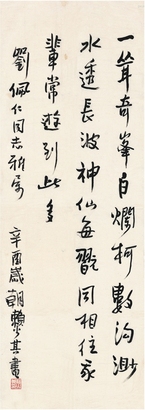 一聳奇峯自爛柯數海渺
水透長波神仙每戲同相住家
輩常遊到此多
劉佩仁同志雅屬
辛酉歲朝賴少其書